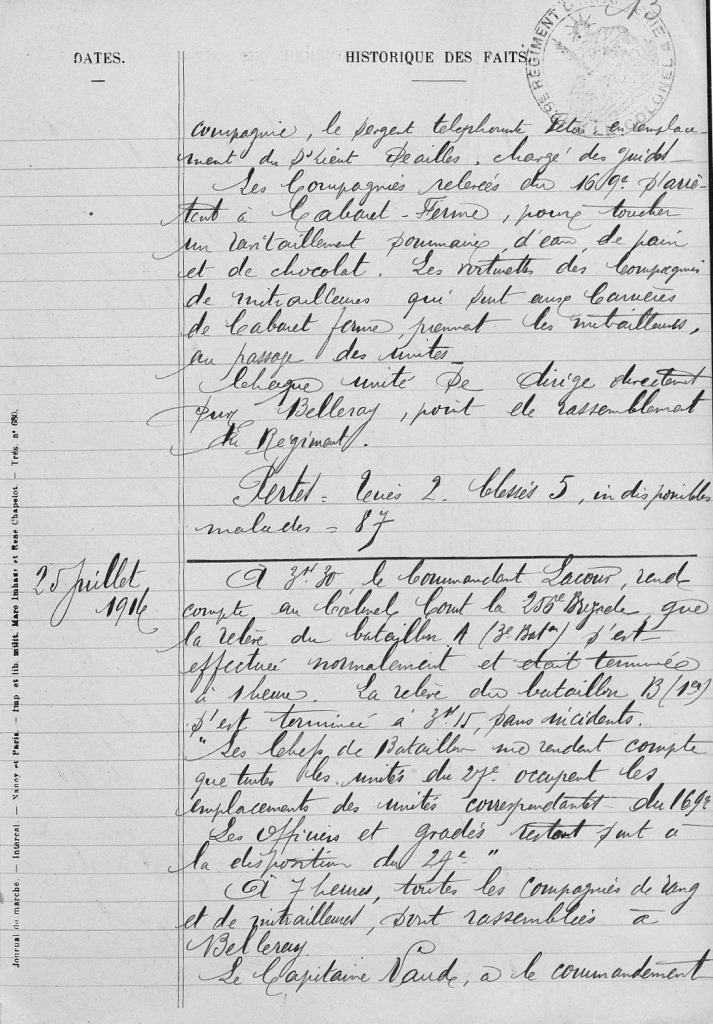 DATES.
HISTORIQUE DES FAITS.
compagnie, le sergent telephoniste en remplace-
ment du s/lieut Deailles, chargé des
Les Compagnies relevées du 169e s'arrê-
tent à Cabaret-Ferme, pour toucher
un ravitaillement sommaire, d'eau, de pain
et de chocolat. Les voiturettes des Compagnies
de mitrailleuses qui sont aux Carrières
de Cabaret ferme, prennent les mitrailleuses,
au passage des unités_
Chaque unité se dirige directement
sur Belleray, point de rassemblement
du Régiment.
Pertes = Tués 2. blessés 5, indisponibles
malades = 87
25 Juillet
1916
A 3h30 le Commandant Lacour, rend
compte au Colonel Comt la 256e Brigade, que
la relève du bataillon A (3e Baton) s'est
effectuée normalement et était terminée
à 1 heure. La relève du bataillon B (1er)
s'est terminée à 3h15, sans incidents.
"Les Chefs de Bataillon me rendent compte
que toutes les unités du 27e occupent les
emplacements des unités correspondantes du 169e
Les Officiers et gradés restant sont à
la disposition du 27e "
A 7 heures, toutes les compagnies de rang
et de mitrailleuses, sont rassemblées à
Belleray
Le Capitaine Naude, a le commandement
Journal de marche. — Intercal. — Nancy et Paris. — Imp et lib. milit. Marc Imhaus et René Chapelot. — Trés. n° 680.